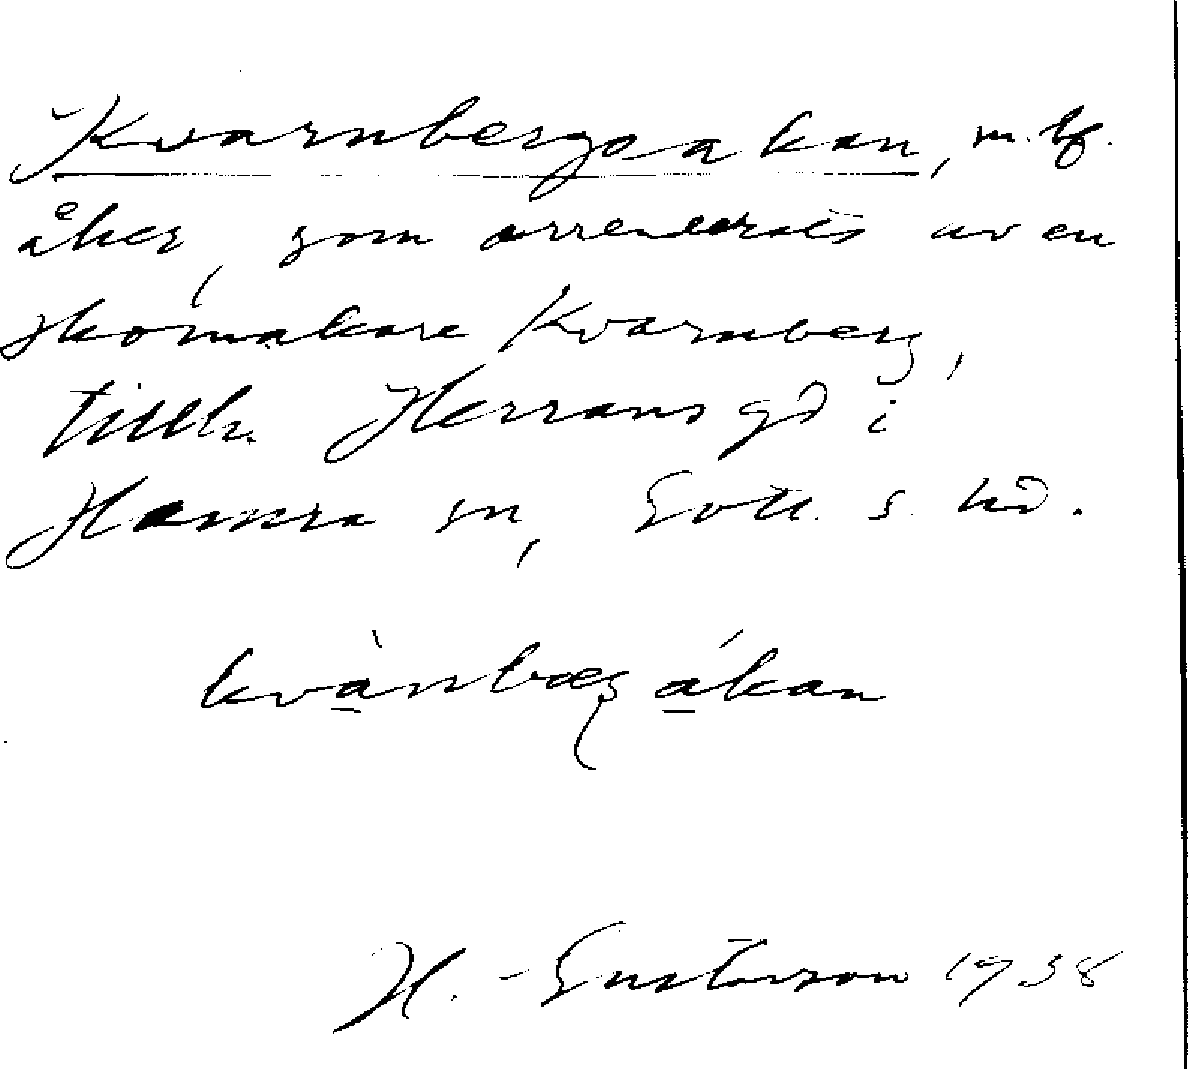 Kvarnbergsakan, m. bf.
åker, som arrenderats av en
skomakare Kvarnberg,
tillh. Herrans gd i
Hamra sn, Gotl. s. hd.
kvànbærg ákan
H. Gustavson 1938